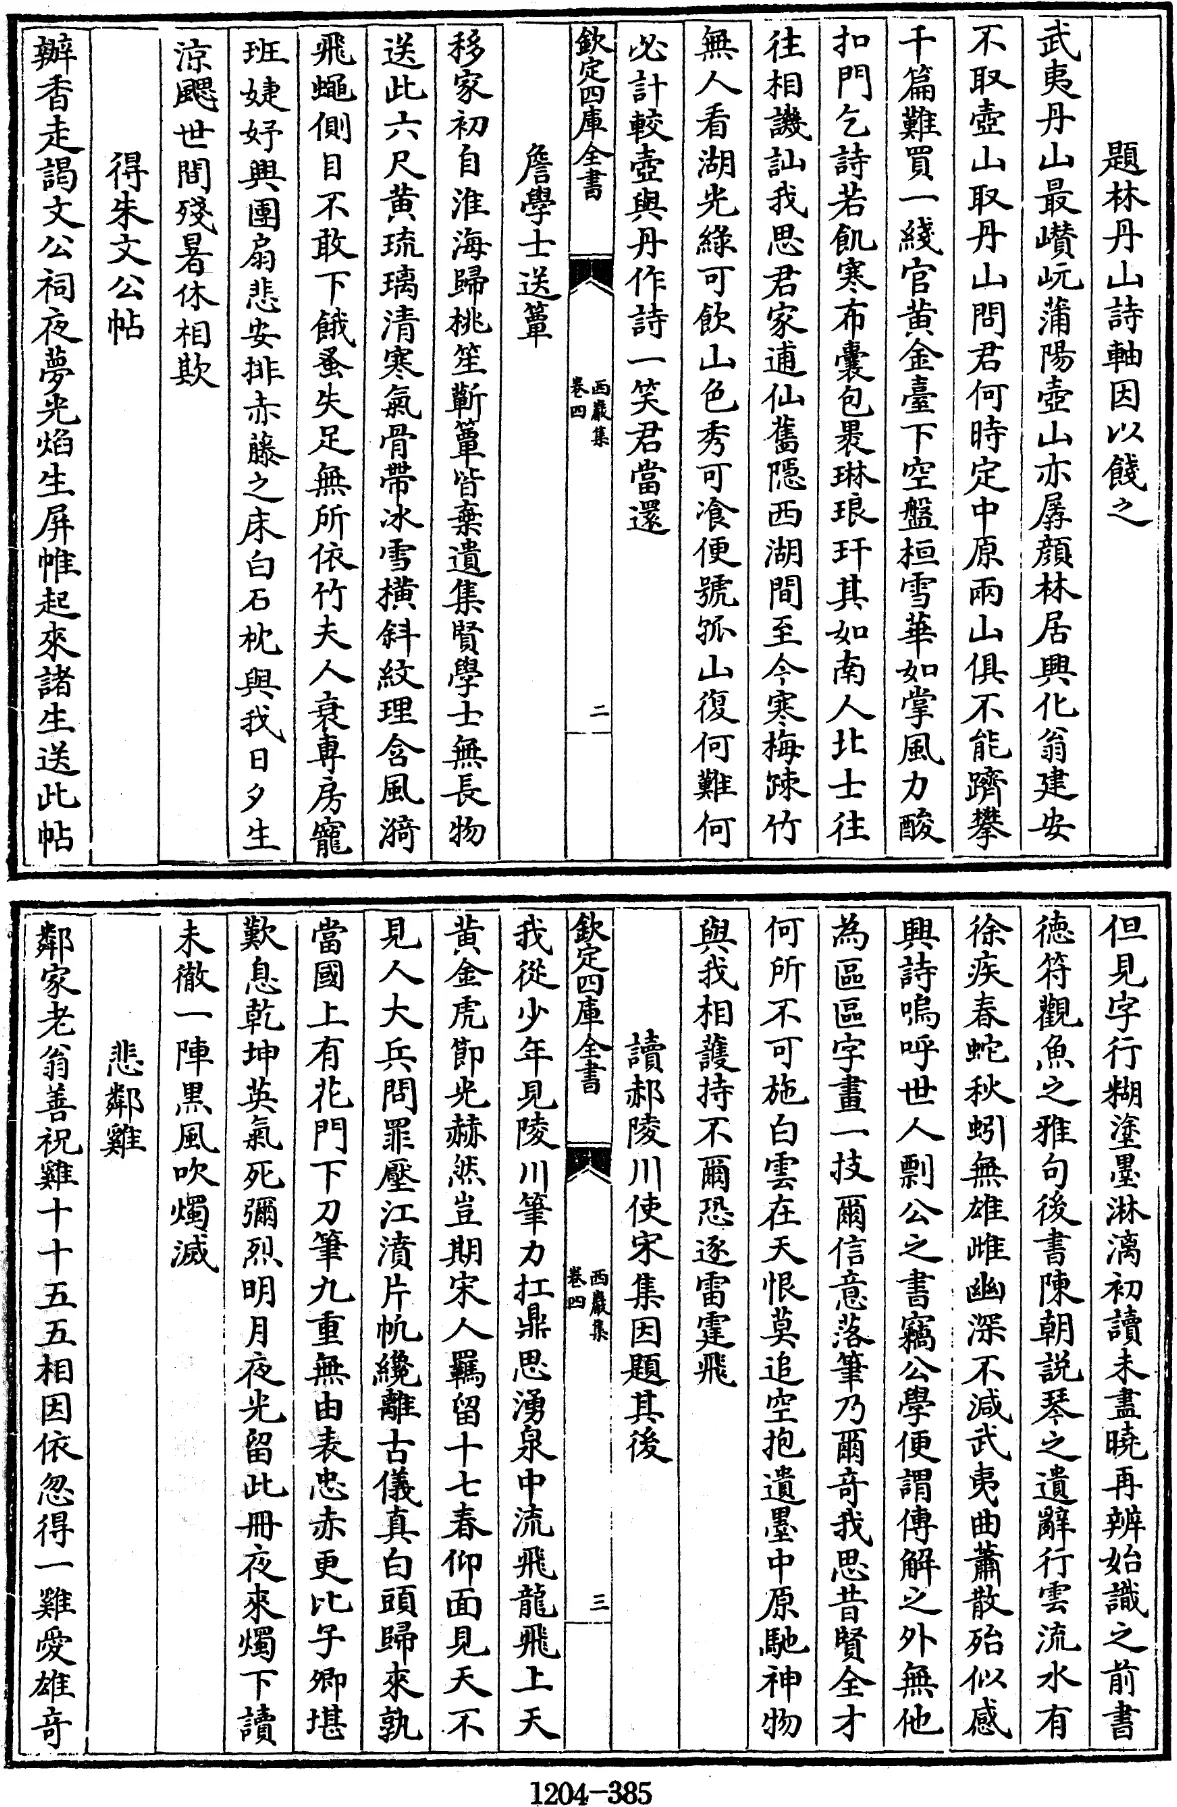 題林丹山詩軸因以餞之
武夷丹山最巑岏蒲陽壺山亦孱顔林居興化翁建安
不取壺山取丹山問君何時定中原兩山俱不能躋攀
千篇難買一綫官黄金臺下空盤桓雪華如掌風力酸
扣門乞詩若飢寒布囊包褁琳琅玕其如南人北士往
往相譏訕我思君家逋仙舊隱西湖間至今寒梅疎竹
無人看湖光緑可飲山色秀可飡便號孤山復何難何
必計較壺與丹作詩一笑君當還
欽定四庫全書
西巖集
卷四
二
詹學士送簟
移家初自淮海歸桃笙蘄簟皆棄遺集賢學士無長物
送此六尺黄琉璃清寒氣骨帶冰雪横斜紋理含風漪
飛蠅側目不敢下餓蚤失足無所依竹夫人衰專房寵
班婕妤興團扇悲安排赤藤之床白石枕與我日夕生
涼颸世間殘暑休相欺
得朱文公帖
辦香走謁文公祠夜夢光焰生屏帷起來諸生送此帖
但見字行糊塗墨淋漓初讀未盡曉再辨始識之前書
德符觀魚之雅句後書陳朝説琴之遺辭行雲流水有
徐疾春蛇秋蚓無雄雌幽深不減武夷曲蕭散殆似感
興詩嗚呼世人剽公之書竊公學便謂傳解之外無他
為區區字畫一技爾信意落筆乃爾奇我思昔賢全才
何所不可施白雲在天恨莫追空抱遺墨中原馳神物
與我相護持不爾恐逐雷霆飛
讀郝陵川使宋集因題其後
欽定四庫全書
西巖集
卷四
三
我從少年見陵川筆力扛鼎思湧泉中流飛龍飛上天
黄金虎節光赫然豈期宋人羈留十七春仰面見天不
見人大兵問罪壓江濆片帆纔離古儀真白頭歸來孰
當國上有花門下刀筆九重無由表忠赤更比子卿堪
歎息乾坤英氣死彌烈明月夜光留此冊夜來燭下讀
未徹一陣黒風吹燭滅
悲鄰雞
鄰家老翁善祝雞十十五五相因依忽得一雞愛雄奇
1204-385